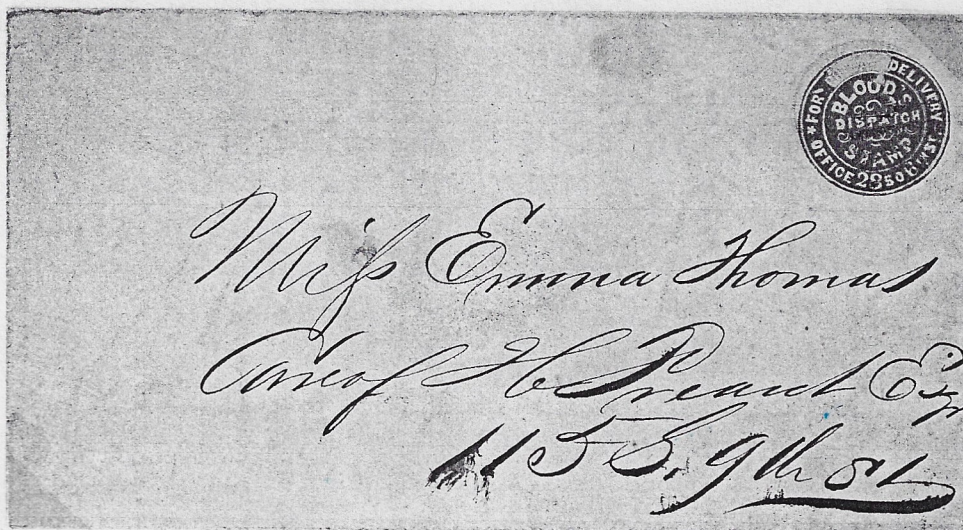 FOR DELIVERY
BLOOD'S
DISPATCH
STAMP
OFFICE 28 SO 6TH ST
Miss Emma Thomas
Care of H Esq
115 S. 9th St